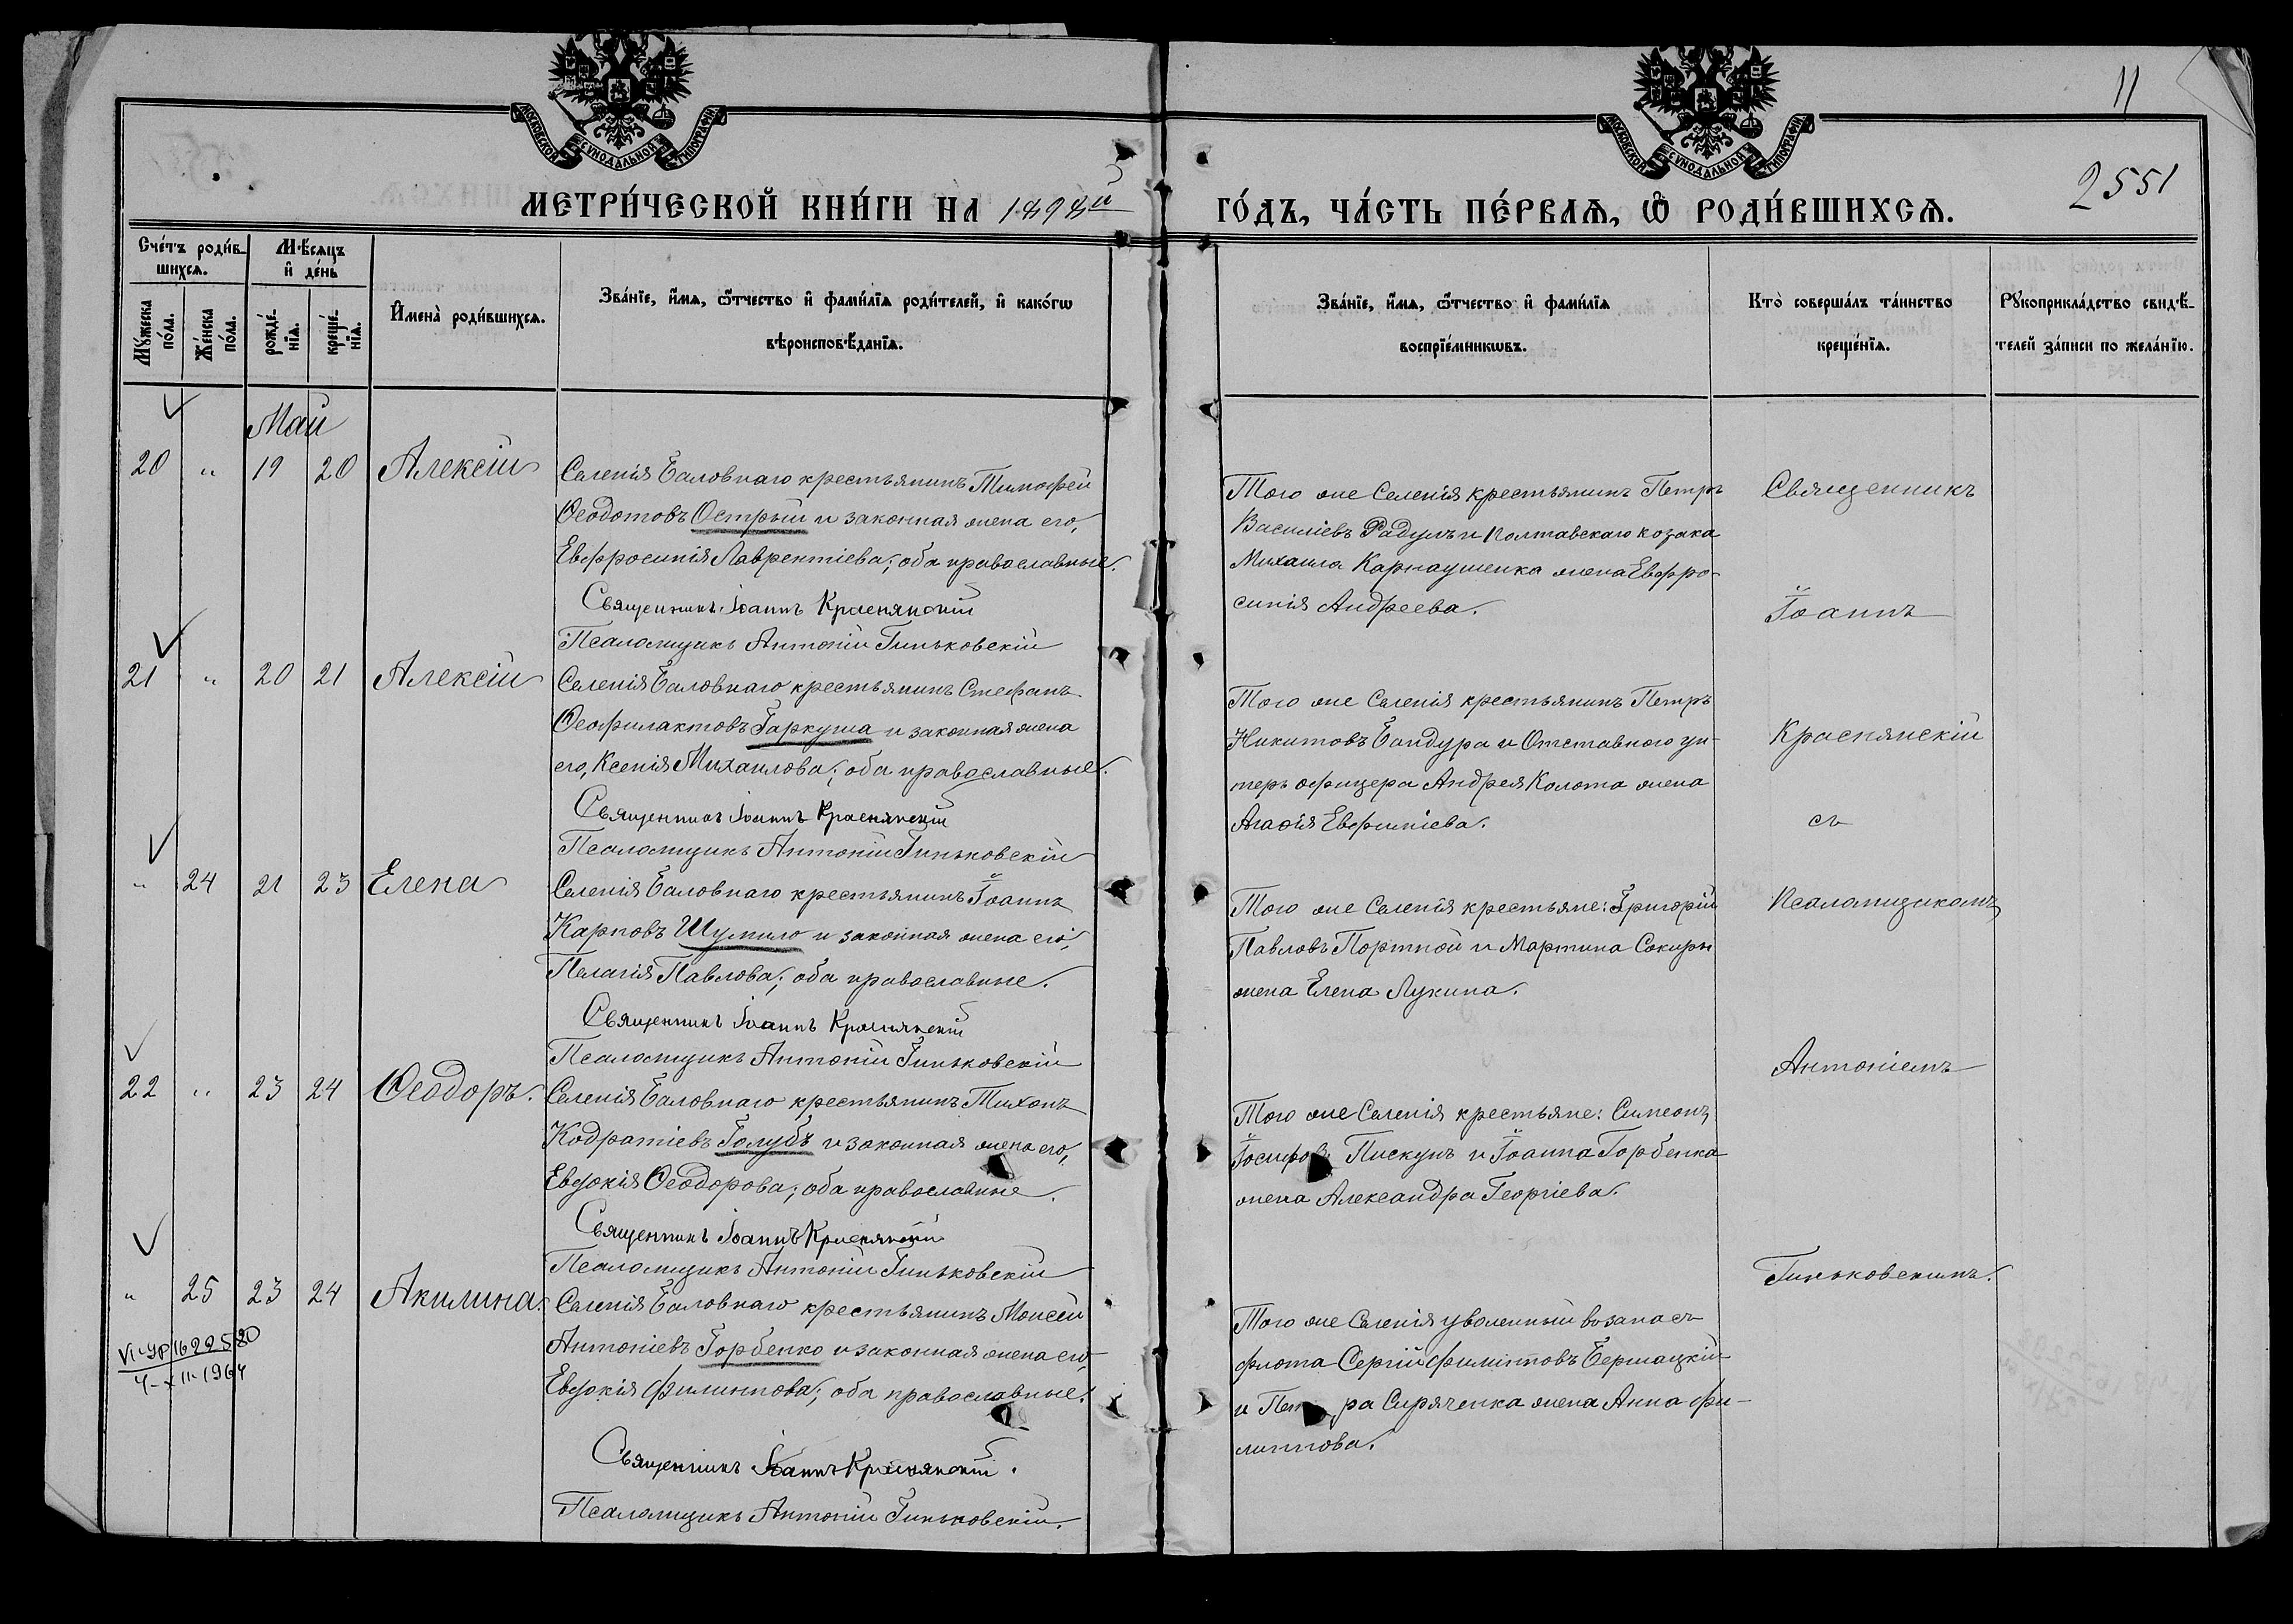 11
МОСКОВСКОЙ СѴНОДАЛЬНОЙ ТИПОГРАФІИ
МОСКОВСКОЙ СѴНОДАЛЬНОЙ ТИПОГРАФІИ
2551
МЕТРИ́ЧЕСКОЙ КНИ́ГИ НА 1898й
ГО́ДЪ, ЧА́СТЬ ПЕ́РВАѦ, Ѡ҆ РОДИ́ВШИХСѦ.
Сче́тъ роди́в-
шихсѧ.
Мѣ́сѧцъ
и҆ де́нь
Мꙋ́жеска
по́ла.
Же́нска
по́ла.
рожде́-
нїѧ.
креще́-
нїѧ.
И҆мена̀ роди́вшихсѧ.
Зва́нїе, и҆́мѧ, ѻ҆́тчество и҆ фами́лїѧ роди́телей, и҆ како́гѡ
вѣроисповѣ́данїѧ.
Зва́нїе, и҆́мѧ, ѻ҆́тчество и҆ фами́лїѧ
воспрїе́мникѡвъ.
Кто̀ соверша́лъ та́инство
креще́нїѧ.
Рꙋкоприкла́дство свидѣ́-
телей за́писи по жела́нїю.
Май
20 " 19 20 Алексій
Селенія Баловнаго крестьянинъ Тимофей
Ѳеодотовъ Острый и законная жена его,
Евфросинія Лаврентіева; оба православные.
Священникъ Іоаннъ Краснянскій
Псаломщикъ Антоній Гиньковскій
Того же Селенія крестьянинъ Петръ
Василіевъ Радулъ и Полтавскаго козака
Михаила Карнаушенка жена Евфро-
синія Андреева.
Священникъ
Іоаннъ
21 " 20 21 Алексій
Селенія Баловнаго крестьянинъ Стефанъ
Ѳеофилактовъ Гаркуша и законная жена
его, Ксенія Михаилова; оба православные.
Священникъ Іоаннъ Краснянскій
Псаломщикъ Антоній Гиньковскій
Того же Селенія крестьянинъ Петръ
Никитовъ Бандура и Отставного ун-
теръ офицера Андрея Колота жена
Агаѳія Евфиміева.
Краснянскій
съ
" 24 21 23 Елена
Селенія Баловнаго крестьянинъ Іоаннъ
Карповъ Шумило и законная жена его,
Пелагія Павлова; оба православные.
Священникъ Іоаннъ Краснянскій
Псаломщикъ Антоній Гиньковскій
Того же Селенія крестьяне: Григорій
Павловъ Портной и Мартина Сокиры
жена Елена Лукина.
Псаломщикомъ
Антоніемъ
22 " 23 24 Ѳеодоръ.
Селенія Баловнаго крестьянинъ Тихонъ
Кодратіевъ Голубъ и законная жена его,
Евдокія Ѳеодорова; оба православные.
Священникъ Іоаннъ Краснянскій
Псаломщикъ Антоній Гиньковскій
Того же Селенія крестьяне: Симеонъ
Іосифовъ Пискунъ и Іоанна Горбенка
жена Александра Георгіева.
Гиньковскимъ.
" 25 23 24 Акилина.
Селенія Баловнаго крестьянинъ Моисей
Антоніевъ Горбенко и законная жена его,
Евдокія Филиппова; оба православные.
Священникъ Іоаннъ Краснянскій.
Псаломщикъ Антоній Гиньковскій.
Того же Селенія уволенный въ запасъ
флота Сергій Филипповъ Бершацкій
и Петра Сиряченка жена Анна Фи-
липпова.
VI-УР 1622580
4-XII-1964